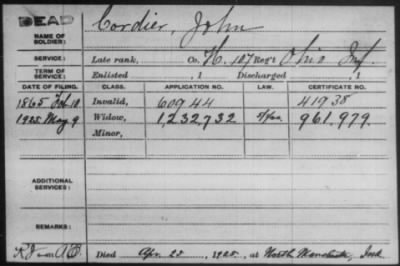 DEAD
NAME OF SOLDIER: Cordier, John
SERVICE: Late rank, Co. H. 107 Reg't Ohio Inf.
TERM OF SERVICE: Enlisted , 1 Discharged , 1
DATE OF FILING. CLASS. APPLICATION NO. LAW. CERTIFICATE NO.
1865 Invalid, 60944 41938
1925 May 9 Widow, 1,232,732 961,979.
Minor,
ADDITIONAL SERVICES:
REMARKS:
Died Apr. 25, 1925, at North Manchester, Ind